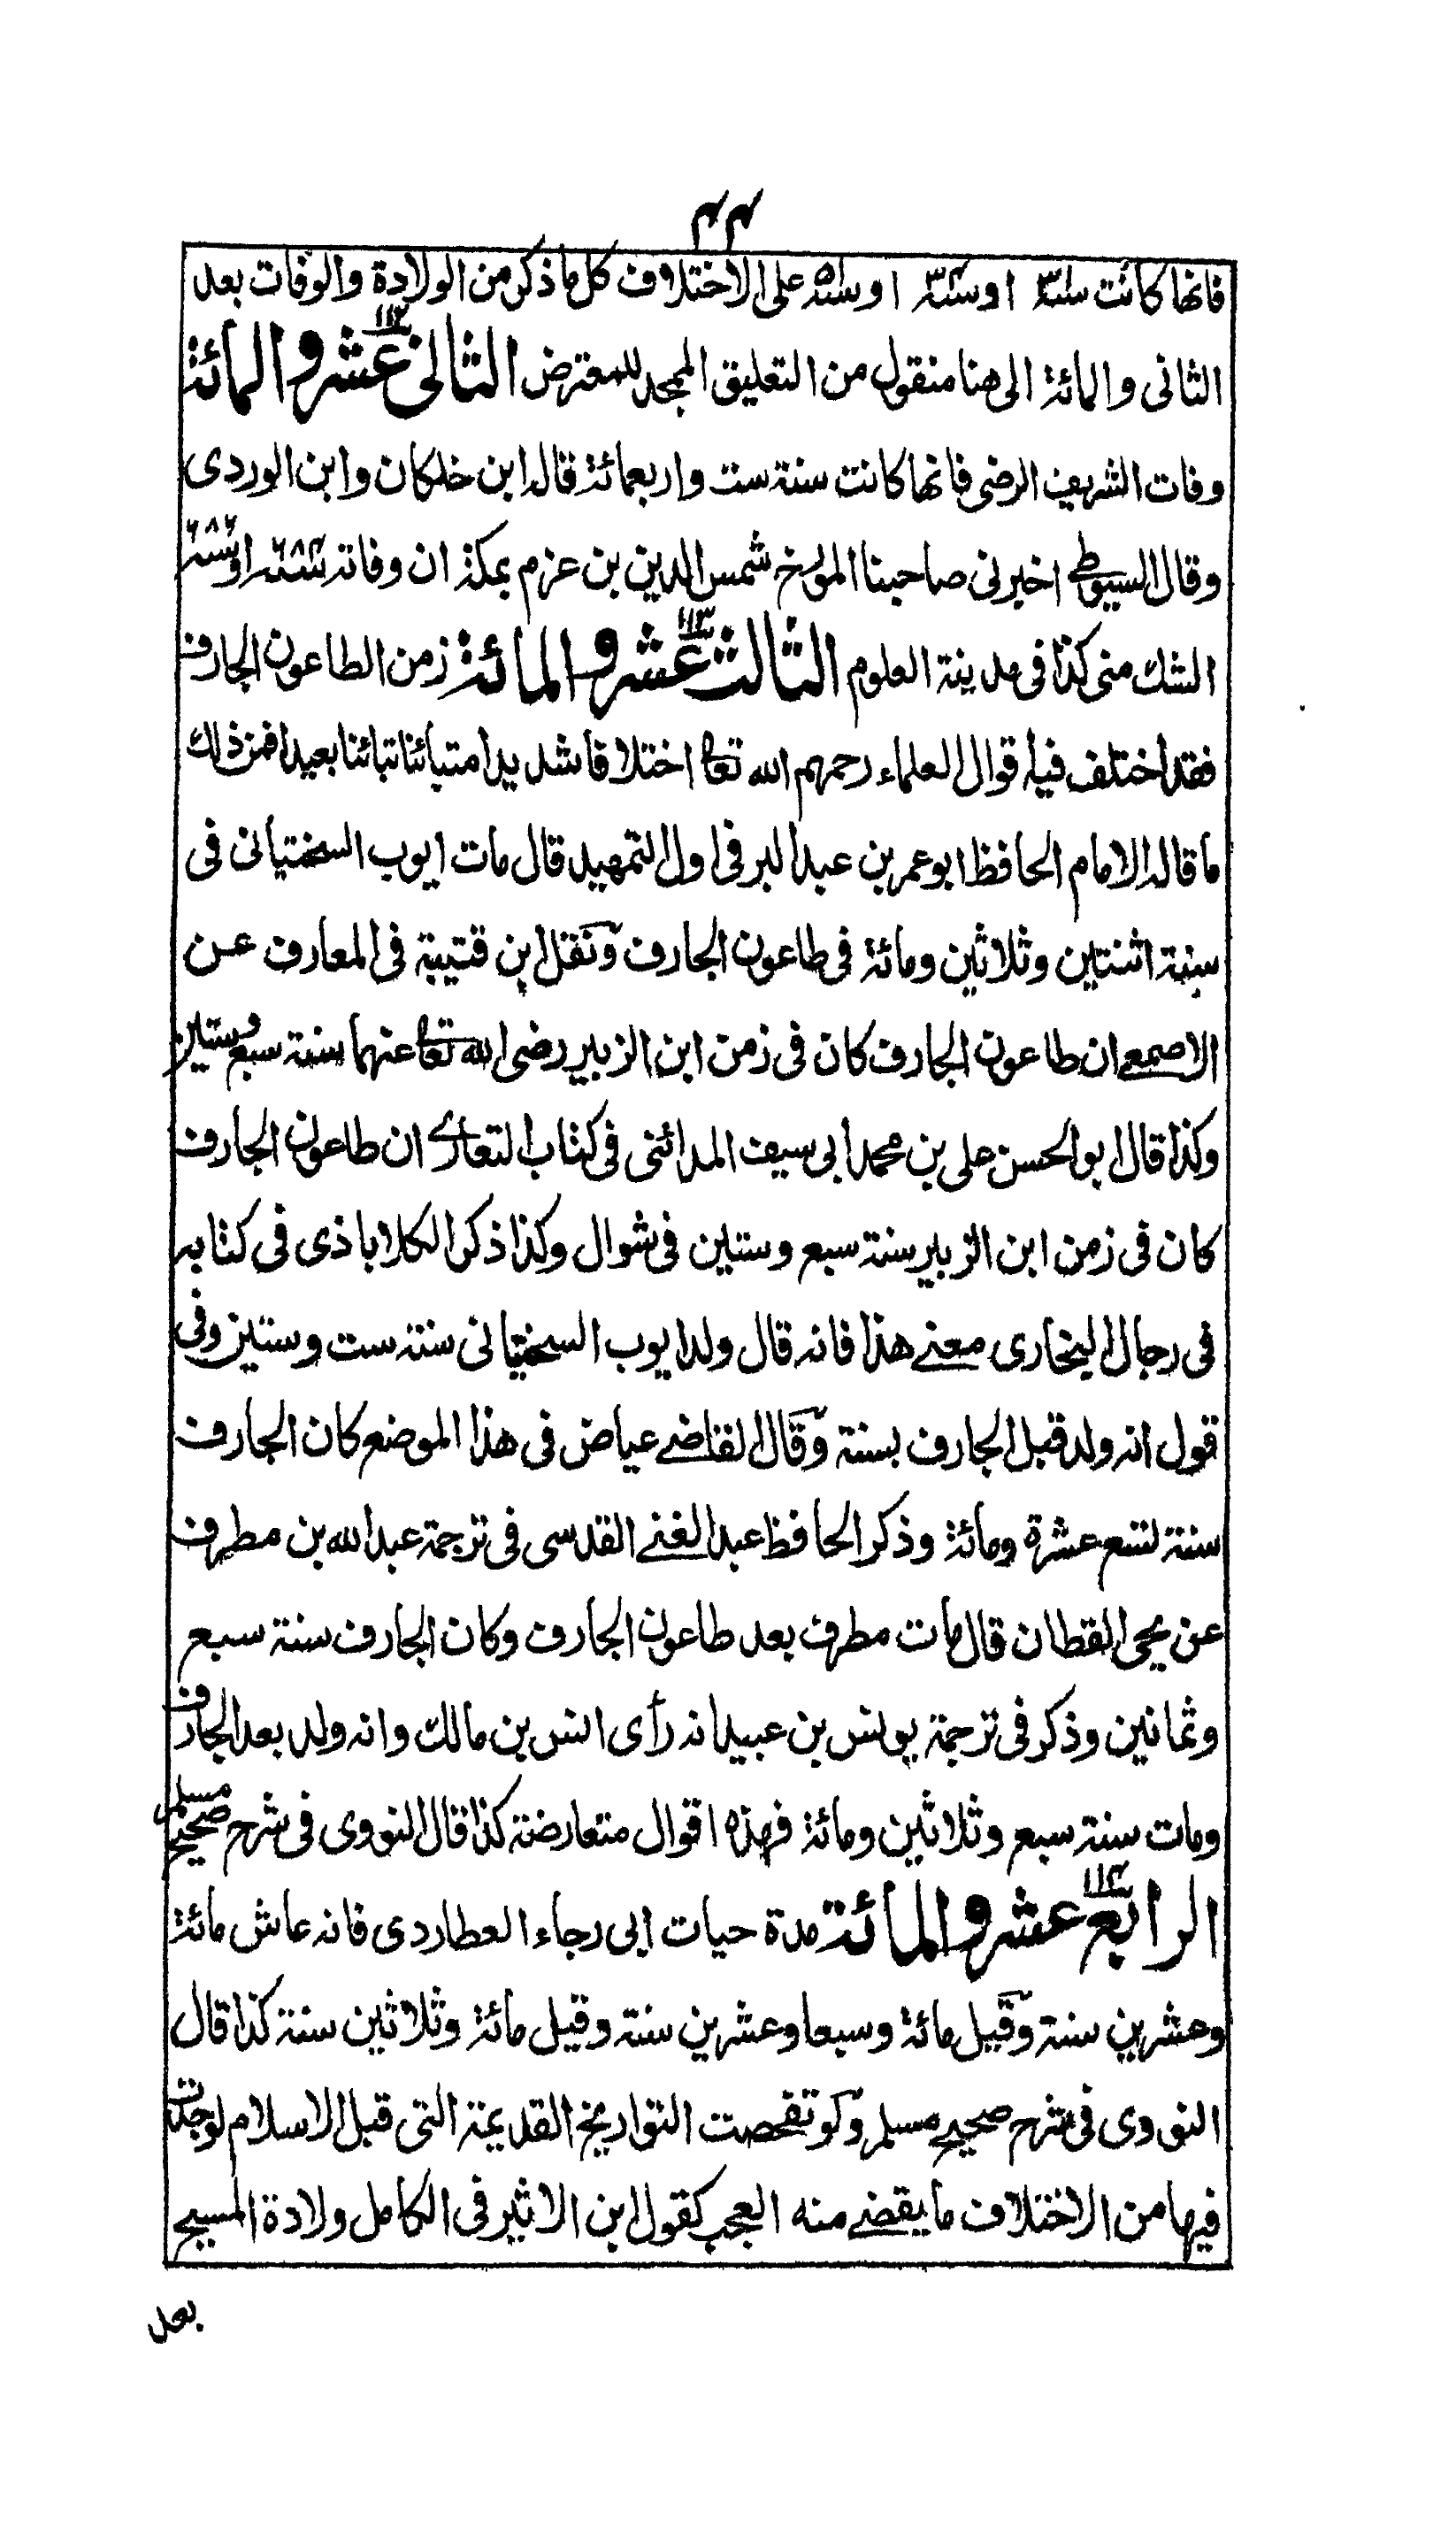 ۴۴
فانها كانت سنة او سنة او سنة على الاختلاف كل ما ذكر من الولادة والوفات بعد
الثانى والمائة الى هنا منقول من التعليق الممجد للمعترض الثانى عشر والمائة ۱۱۲
وفات الشريف الرضى فانها كانت سنة ست واربعمائة قاله ابن خلكان وابن الوردى
وقال السيوطى اخبرنى صاحبنا المورخ شمس الدين بن عزم بمكة ان وفاته سنة ۶۸۴ او سنة ۶۸۶
الشك منى كذا فى مدينة العلوم الثالث عشر والمائة ۱۱۳ زمن الطاعون الجارف
فقد اختلف فيه اقوال العلماء رحمهم الله تعا اختلافا شديدا متبائنا تبائنا بعيدا فمن ذلك
ما قاله الامام الحافظ ابو عمر بن عبد البر فى اول التمهيد قال مات ايوب السختيانى فى
سنة اثنتين وثلاثين ومائة فى طاعون الجارف ونقل ابن قتيبة فى المعارف عن
الاصمعے ان طاعون الجارف كان فى زمن ابن الزبير رضى الله تعا عنهما سنة سبع وستين
وكذا قال ابو الحسن على بن محمد ابى سيف المدائنى فى كتاب التعازے ان طاعون الجارف
كان فى زمن ابن الزبير سنة سبع وستين فى شوال وكذا ذكر الكلاباذى فى كتابه
فى رجال البخارى معنے هذا فانه قال ولد ايوب السختيانى سنة ست وستين وفى
قول انه ولد قبل الجارف بسنة وقال القاضے عياض فى هذا الموضع كان الجارف
سنة تسع عشرة ومائة وذكر الحافظ عبد الغنے القدسى فى ترجمة عبد الله بن مطرف
عن يحيى القطان قال مات مطرف بعد طاعون الجارف وكان الجارف سنة سبع
وثمانين وذكر فى ترجمة يونس بن عبيد انه رأى انس بن مالك وانه ولد بعد الجارف
ومات سنة سبع وثلاثين ومائة فهذه اقوال متعارضة كذا قال النووى فى شرح صحيح مسلم
الرابع عشر والمائة ۱۱۴ مدة حيات ابى رجاء العطاردى فانه عاش مائة
وعشرين سنة وقيل مائة وسبعا وعشرين سنة وقيل مائة وثلاثين سنة كذا قال
النووى فى شرح صحيح مسلم ولو تفحصت التواريخ القديمة التى قبل الاسلام لوجدت
فيها من الاختلاف ما يقضے منه العجب كقول ابن الاثير فى الكامل ولادة المسيح
بعد